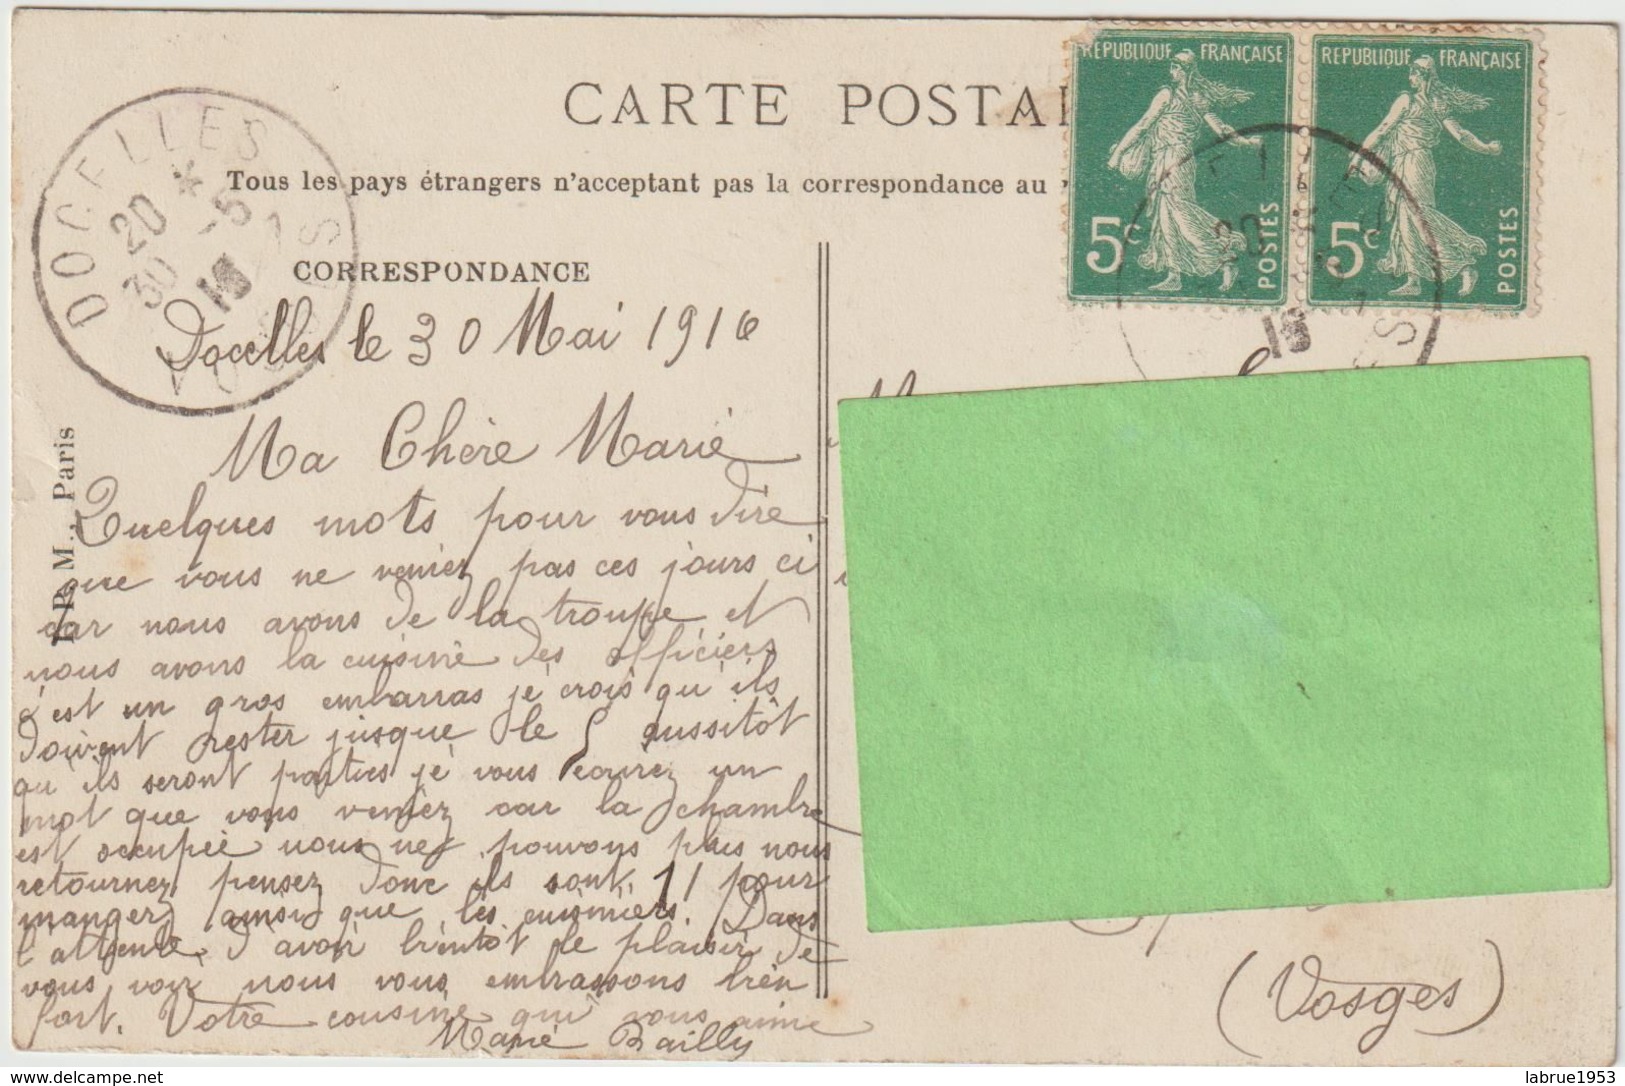 CARTE POSTAL
Tous les pays étrangers n'acceptant pas la correspondance au
RÉPUBLIQUE FRANÇAISE
5c POSTES
RÉPUBLIQUE FRANÇAISE
5c POSTES
DOCELLES
20 * -5
30 16
VOSGES
20
16
CORRESPONDANCE
I. P. M. Paris
Docelles le 30 Mai 1916
Ma Chère Marie
Quelques mots pour vous dire
que vous ne veniez pas ces jours ci
car nous avons de la troupe et
nous avons la cuisine des officiers
c'est un gros embarras je crois qu'ils
doivent rester jusque le 5 aussitôt
qu'ils seront partis je vous écrirez un
mot que vous veniez car la chambre
est occupée nous ne pouvons plus nous
retournez pensez donc ils sont 11 pour
mangerz ainsi que les cuisiniers. Dans
l'attente d'avoir bientôt le plaisir de
vous voir nous vous embrassons bien
fort. Votre cousine qui vous aime
Marie Bailly
(Vosges)
www.delcampe.net
labrue1953